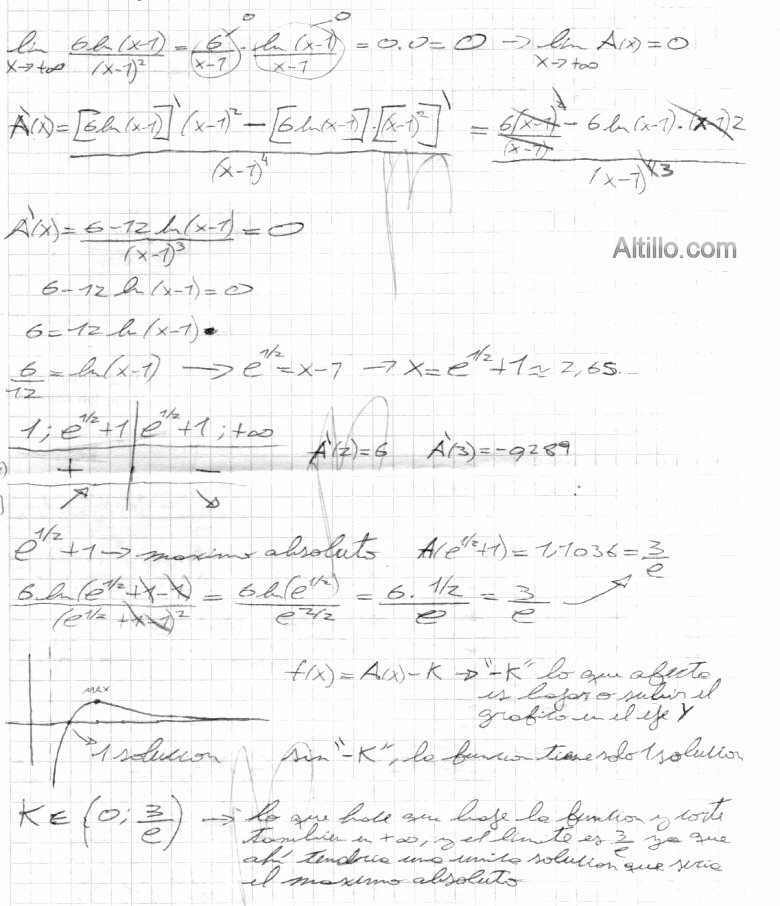 lim x→+∞ 6ln(x-1)/(x-1)² = 6/x-1 →0 · ln(x-1)/x-1 →0 = 0.0 = 0 → lim x→+∞ A(x) = 0
A'(x) = [6ln(x-1)]' (x-1)² - [6ln(x-1)]·[(x-1)²]' / (x-1)⁴ = 6(x-1)²/(x-1) - 6ln(x-1)·(x-1)2 / (x-1)⁴ ³
A'(x) = 6-12ln(x-1) / (x-1)³ = 0
Altillo.com
6-12ln(x-1) = 0
6 = 12ln(x-1)
6/12 = ln(x-1) → e^1/2 = x-1 → x = e^1/2 + 1 ≃ 2,65
1; e^1/2+1 | e^1/2+1; +∞
+ | - A'(2) = 6 A'(3) = -0,289
↗ | ↘
e^1/2+1 → maximo absoluto A(e^1/2+1) = 1,1036 = 3/e
6.ln(e^1/2+1-1) / (e^1/2+1-1)² = 6ln(e^1/2) / e^2/2 = 6.1/2 / e = 3/e
f(x) = A(x)-K → "-K" lo que afecta
max
es bajar o subir el
grafico en el eje Y
1 solucion
sin "-K", la funcion tiene solo 1 solucion
K ∈ (0; 3/e) → lo que hace que baje la funcion y corte
tambien en +∞, y el limite es 3/e ya que
ahí tendria una unica solucion que seria
el maximo absoluto